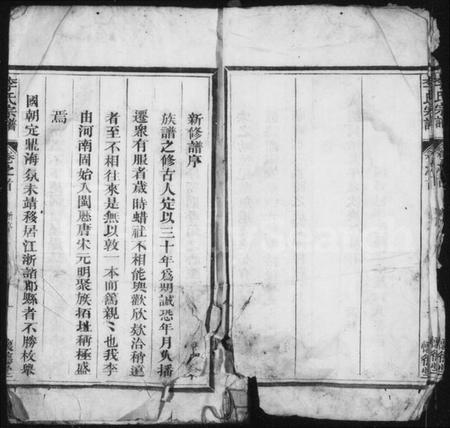 新修譜序
族譜之修古人定以三十年爲期誠恐年月久播
遷衆有服者歲時蜡社不相能與歡欣欵洽稍遠
者至不相往來是無以敦一本而篤親〻也我李
由河南固始入閩歷唐宋元明聚族拓址稱極盛
焉
國朝定鼎海氛未靖移居江浙諸郡縣者不勝枚舉
李氏宗譜
卷之首
李氏宗譜